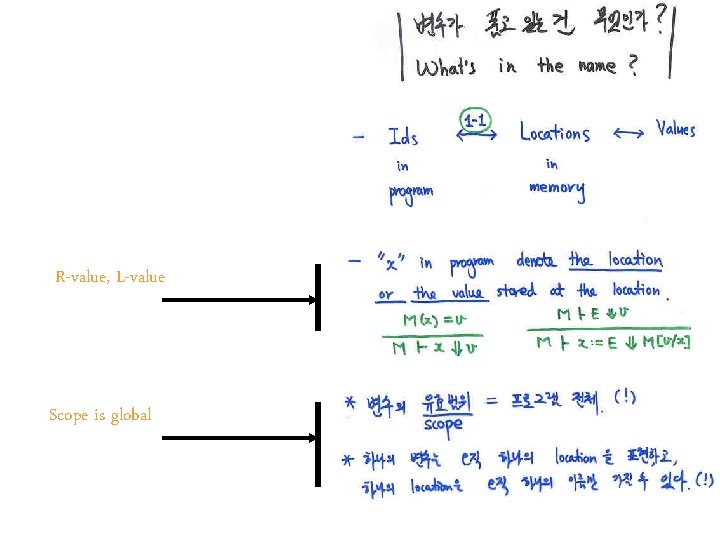 변수가 품고 있는 건 무엇인가?
What's in the name?
- Ids 1-1 Locations Values
in in
program memory
R-value, L-value
- "x" in program denote the location
or the value stored at the location.
M(x) = v
M ⊢ x ⇓ v
M ⊢ E ⇓ v
M ⊢ x := E ⇓ M[v/x]
Scope is global
* 변수의 유효범위 = 프로그램 전체. (!)
scope
* 하나의 변수는 오직 하나의 location을 표현하고,
하나의 location은 오직 하나의 이름만 가질 수 있다. (!)